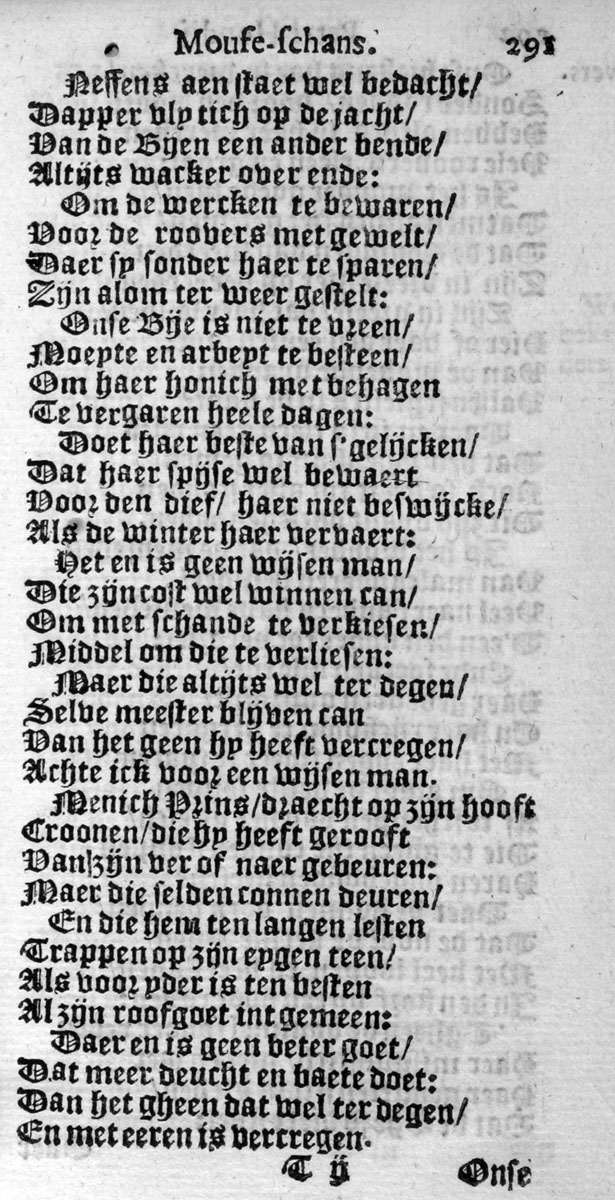 Mouse-schans. 291
Neffens aen staet wel bedacht/
Dapper vlytich op de jacht/
Van de Bijen een ander bende/
Altijts wacker over ende:
Om de wercken te bewaren/
Voor de roovers met gewelt/
Daer sy sonder haer te sparen/
Zijn alom ter weer gestelt:
Onse Bije is niet te vreen/
Moeyte en arbeyt te besteen/
Om haer honich met behagen
Te vergaren heele dagen:
Doet haer beste van s'gelijcken/
Dat haer spijse wel bewaert
Voor den dief/ haer niet beswijcke/
Als de winter haer vervaert:
Het en is geen wijsen man/
Die zijn cost wel winnen can/
Om met schande te verkiesen/
Middel om die te verliesen:
Maer die altijts wel ter degen/
Selve meester blijven can
Van het geen hy heeft vercregen/
Achte ick voor een wijsen man.
Menich Prins/draecht op zijn hooft
Croonen/die hy heeft gerooft
Van zijn ver of naer gebeuren:
Maer die selden connen deuren/
En die hem ten langen lesten
Trappen op zijn eygen teen/
Als voor yder is ten besten
Al zijn roofgoet int gemeen:
Daer en is geen beter goet/
Dat meer deucht en baete doet:
Dan het gheen dat wel ter degen/
En met eeren is vercregen.
T ij Onse